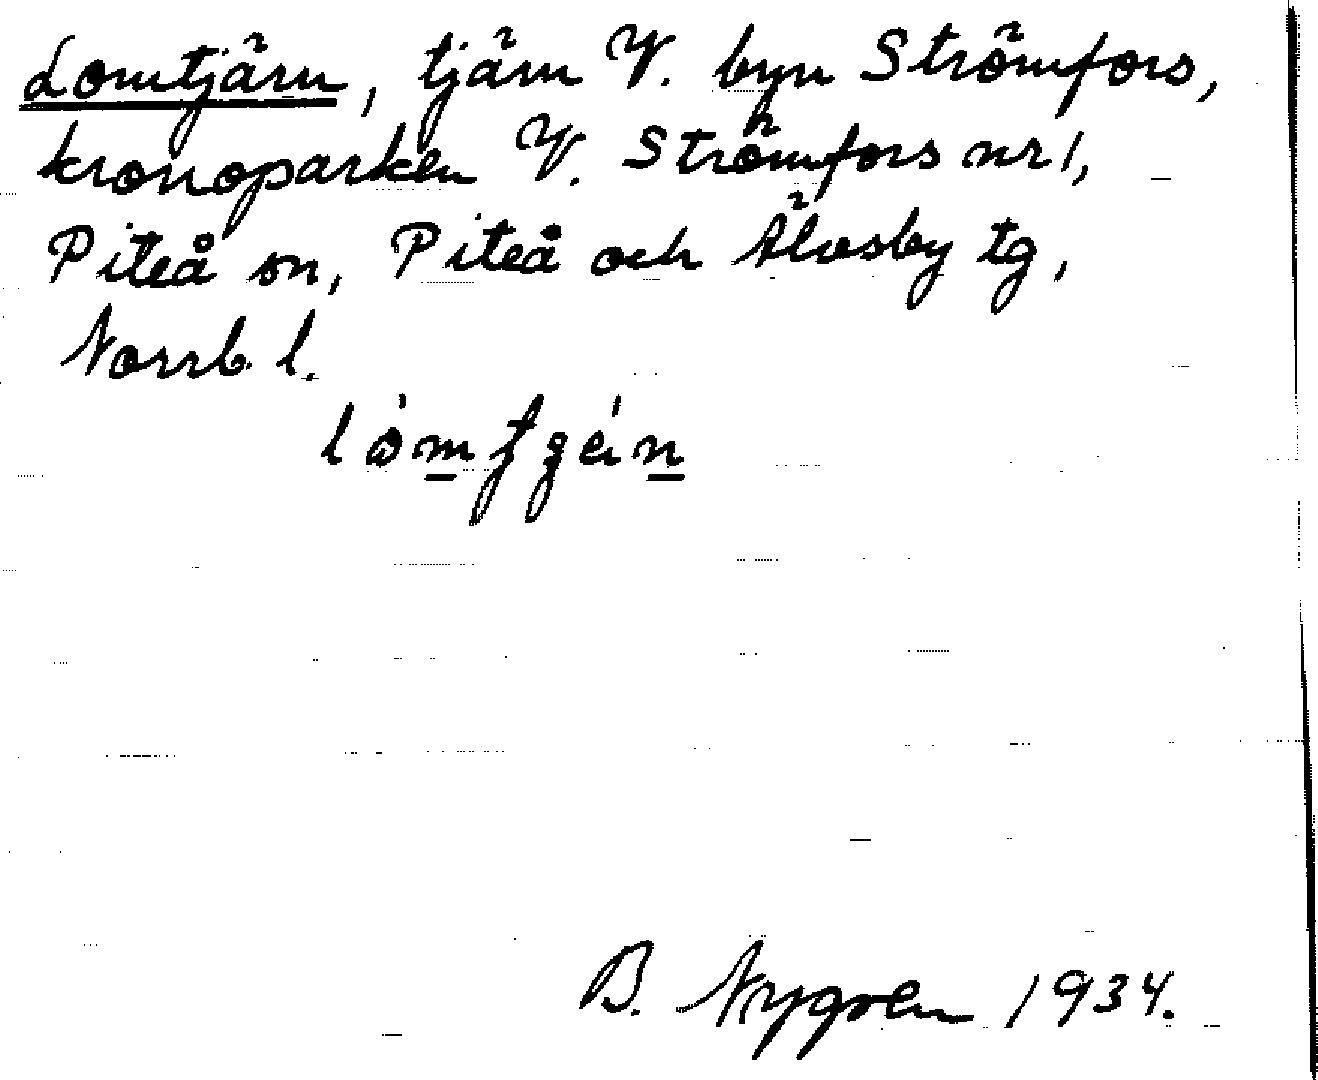 Lomtjärn, tjärn V. byn Strömfors,
kronoparken V. Strömfors nr 1,
Piteå sn, Piteå och Älvsby tg,
Norrb. l.
B. Nygren 1934.